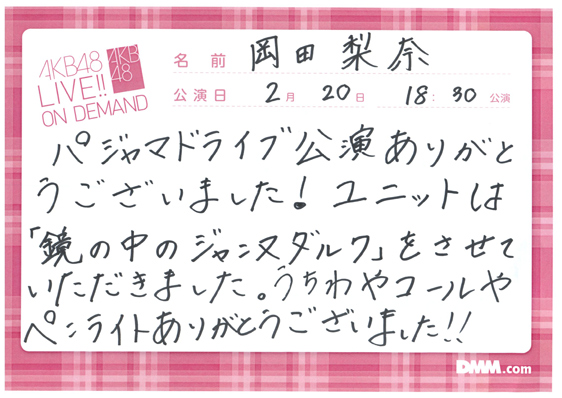 AKB48
LIVE!!
ON DEMAND
AKB
48
名前 岡田梨奈
公演日 2月 20日 18:30 公演
パジャマドライブ公演ありがと
うございました! ユニットは
「鏡の中のジャンヌダルク」をさせて
いただきました。うちわやコールや
ペンライトありがとうございました!!
DMM.com